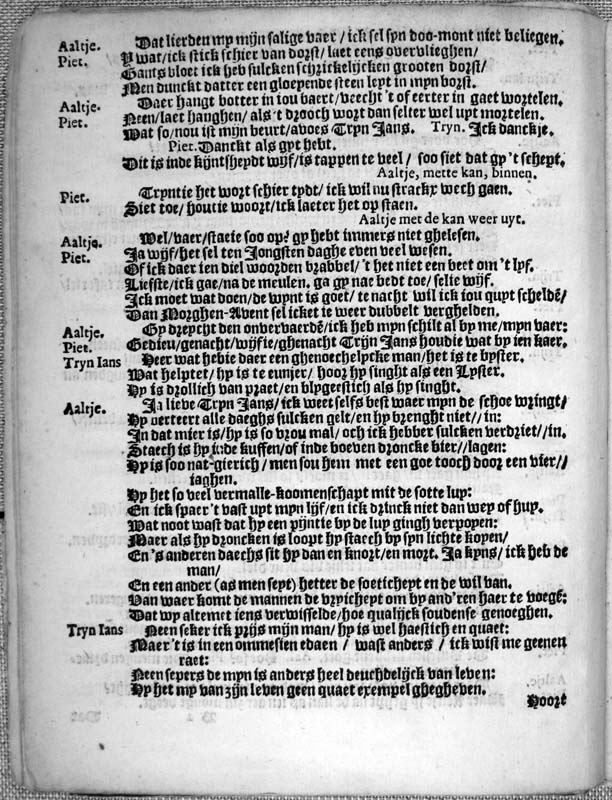 Aaltje. Dat lierden my mijn salige vaer / ick sel syn doo-mont niet beliegen.
Piet. Y wat/ick stick schier van dorst/ laet eens overvlieghen/
Gants bloet ick heb sulcken schrickelijcken grooten dorst/
Men dunckt datter een gloepende steen leyt in myn borst.
Aaltje. Daer hangt botter in iou baert/veecht 't of eerter in gaet wortelen.
Piet. Neen/laet hanghen/ als 't drooch wort dan selter wel uyt mortelen.
Wat so/nou ist mijn beurt/avoes Tryn Jans. Tryn. Ick danckje.
Piet. Danckt als gyt hebt.
Dit is inde kijntsheydt wijf/is tappen te veel / soo siet dat gy 't schept.
Aaltje, mette kan, binnen.
Piet. Tryntie het wort schier tydt/ick wil nu stracky wech gaen.
Siet toe/houtie woort/ick laeter het op staen.
Aaltje met de kan weer uyt.
Aaltje. Wel/vaer/staeie soo op? gy hebt immers niet ghelesen.
Piet. Ja wijf/het sel ten Jongsten daghe even veel wesen.
Of ick daer ien diel woorden brabbel/ 't het niet een beet om 't lyf.
Liefste/ick gae/na de meulen. ga gy nae bedt toe/ selie wijf.
Ick moet wat doen/de wynt is goet/te nacht wil ick iou quyt scheldē/
Dan Morghen-Avent sel icket ie weer dubbelt verghelden.
Aaltje. Gy dreycht den onvervaerdē/ick heb myn schilt al by me/myn vaer:
Piet. Gedieu/genacht/wijfie/ghenacht Trijn Jans houdie wat by ien kaer.
Tryn Ians Heer wat hebie daer een ghenoechelycke man/het is te byster.
Wat helptet/hy is te eunjer/ hoor hy singht als een Lyster.
Hy is drollich van praet/en blygeestich als hy singht.
Aaltje. Ja liebe Tryn Jans/ick weet selfs best waer myn de schoe wringt/
Hy verteert alle daeghs sulcken gelt/en hy brenght niet//in:
In dat mier is/hy is so vrou mal/och ick hebber sulcken verdriet//in.
Staech is hy inde kuffen/of inde boeven droncke bier//lagen:
Hy is soo nat-gierich/men sou hem met een goe tooch door een vier//
iaghen.
Hy het so veel vermalle-koomenschapt mit de sotte luy:
En ick spaer't vast uyt myn lijf/en ick drinck niet dan wey of huy.
Wat noot wast dat hy een pijntie by de luy gingh verpoyen:
Maer als hy droncken is loopt hy staech by syn lichte koyen/
En 's anderen daechs sit hy dan en knort/en mort. Ja kyns/ick heb de
man/
En een ander (as men seyt) hetter de soeticheyt en de wil van.
Van waer komt de mannen de vryicheyt om by and'ren haer te voegē:
Dat wy altemet iens verwisselde/hoe qualijck soudense genoeghen.
Tryn Ians Neen seker ick prijs mijn man/hy is wel haestich en quaet:
Maer't is in een ommesien edaen / wast anders / ick wist me geenen
raet:
Neen seyers de myn is anders heel deuchdelijck van leven:
Hy het my van zijn leven geen quaet exempel ghegheven.
Hoort